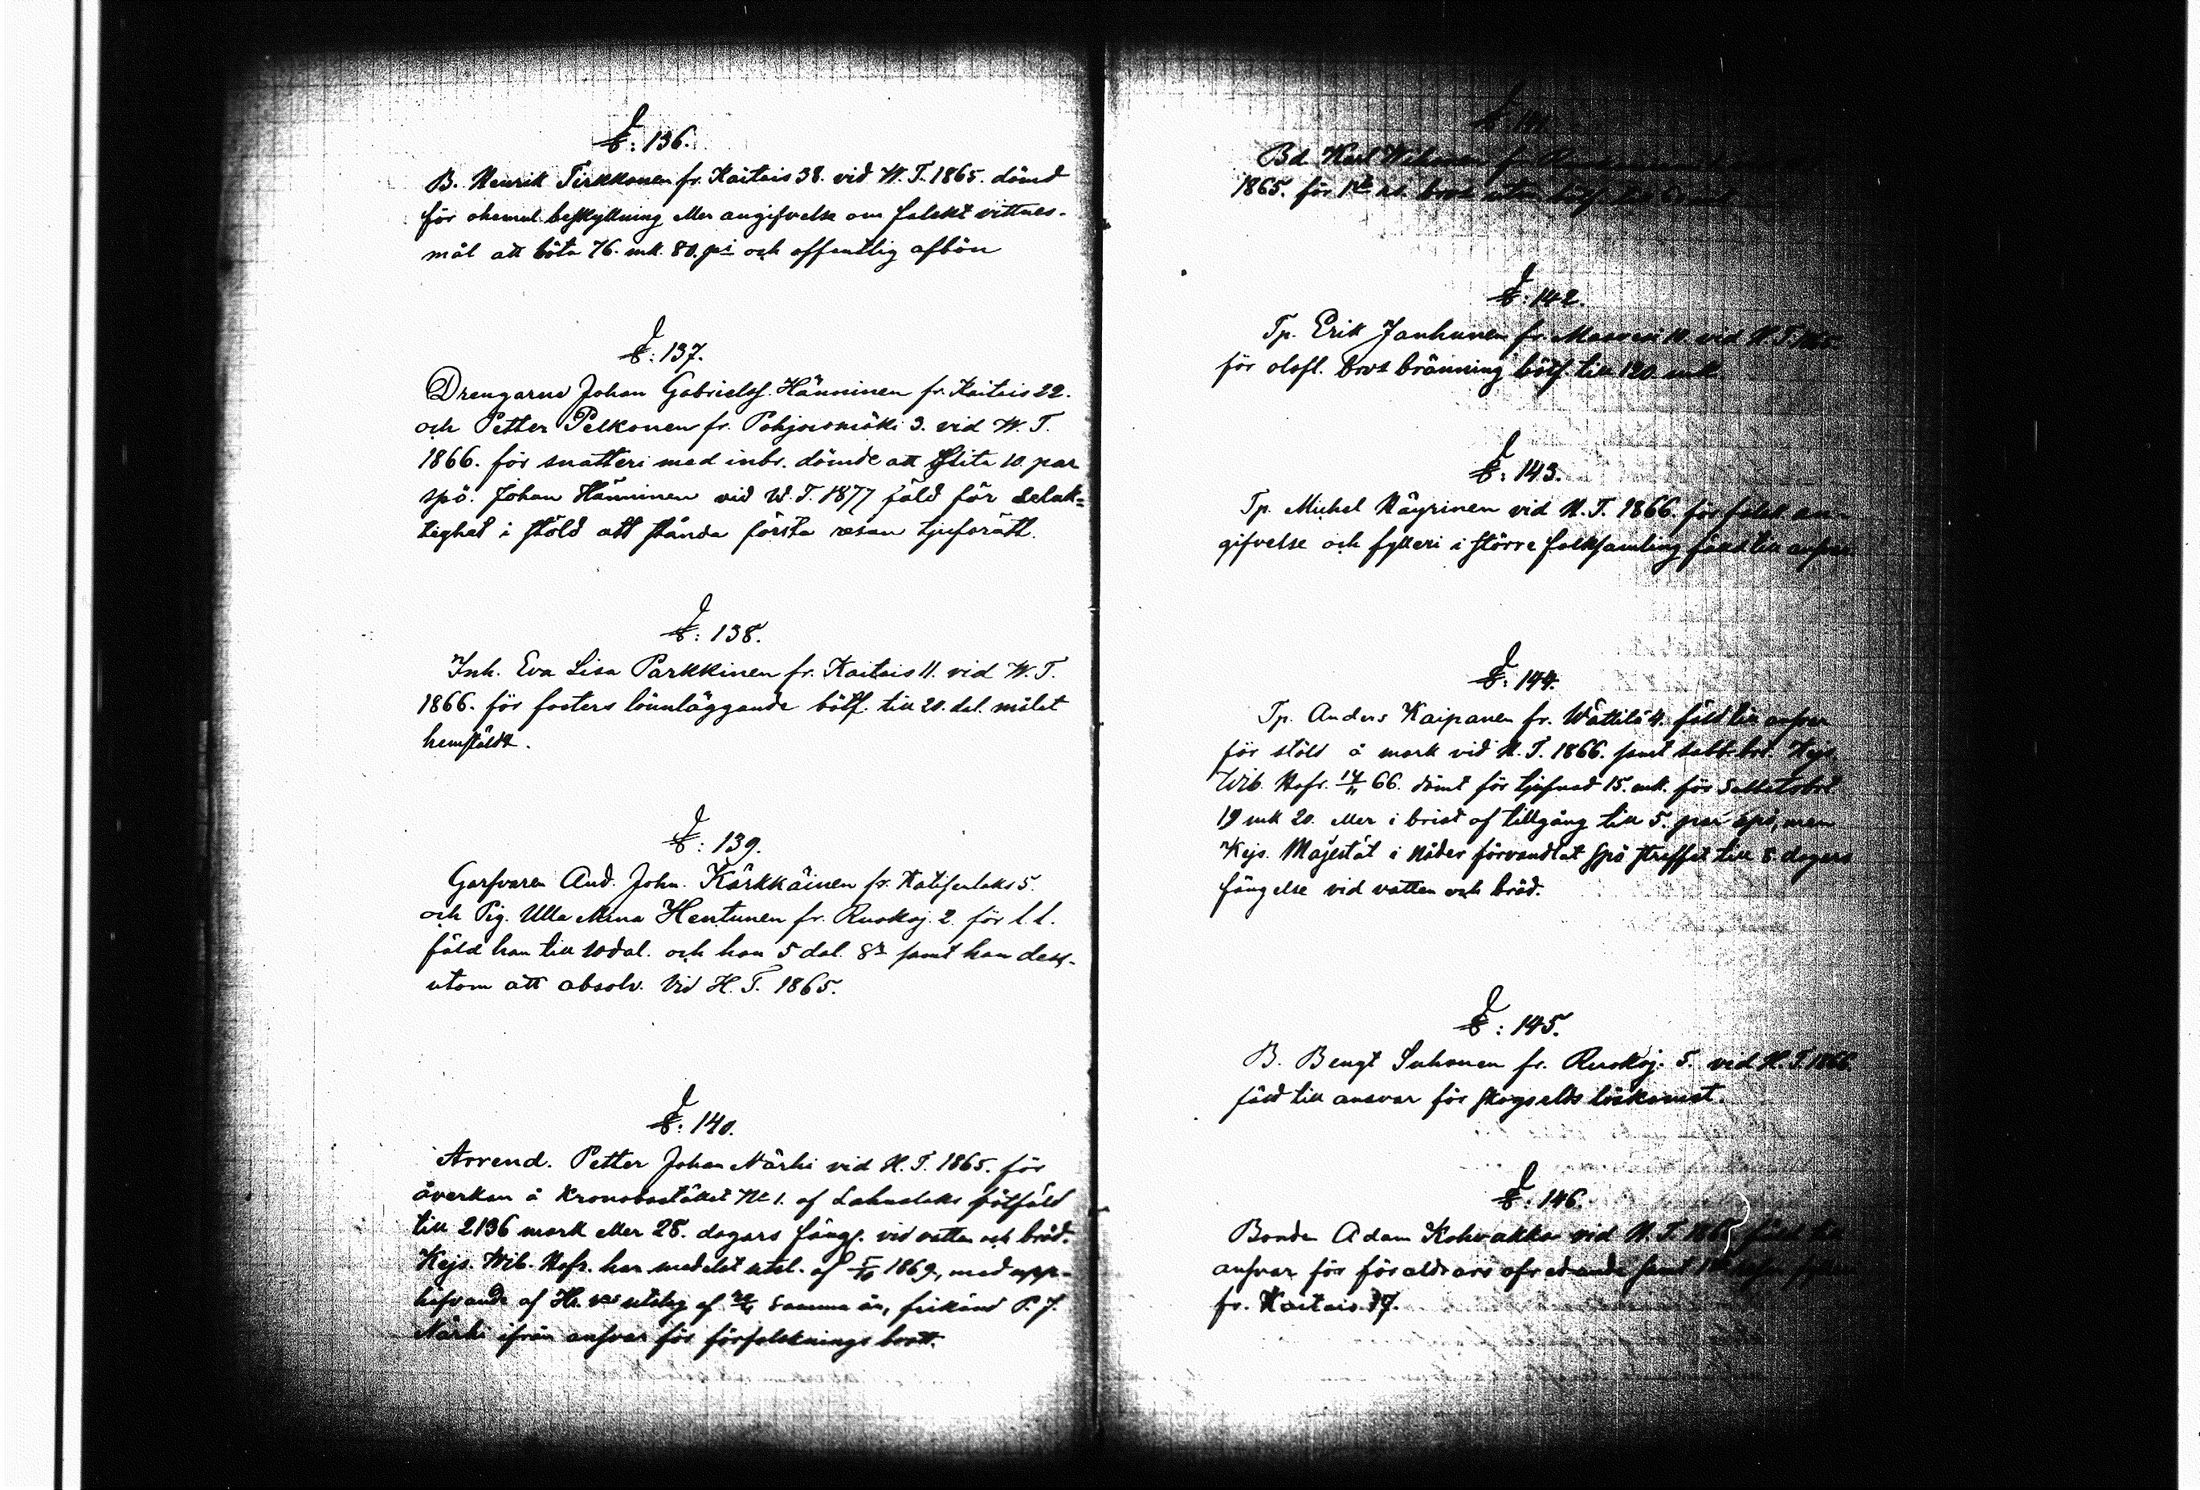 §: 136.
B. Henrik Tirkkonen fr. Kaitais 38. vid W. T. 1865. dömd
för ohemul beskyllning eller angifvelse om falskt vittnes-
mål att böta 76. mk. 80. pi och offentlig afbön
§: 137.
Drengarne Johan Gabrielsf. Hänninen fr. Kaitais 22.
och Petter Pelkonen fr. Pohjoismäki 3. vid W. T.
1866. för snatteri med inbr. dömde att slita 10. par
spö. Johan Hänninen vid W. T. 1877 fäld för delak-
tighet i stöld att stånda första resan tjufsrätt.
§: 138.
Inh. Eva Lisa Parkkinen fr. Kaitais 11. vid W. T.
1866. för fosters lönnläggande bötf. till 20. dal. målet
hemstäldt.
§: 139.
Garfvaren And. Joh. Kärkkäinen fr. 5.
och Pig. Ulla Mina Hentunen fr. Ruokoj. 2. för l. l.
fäld han till 10 dal. och hon 5 dal. 8r samt hon dess-
utom att absolv. Vid H. T. 1865.
§: 140.
Arrend. Petter Johan Närhi vid H. T. 1865. för
åverkan å Kronobostället No 1. af bötfäld
till 2136 mark eller 28. dagars fängs. vid vatten och bröd.
Kejs. Wib. Hofr. har medelst utsl. af 1869, med upp-
häfvande af utslag af samma år, frikänd P. J.
Närhi ifrån ansvar för förfalsknings brott.
Bd Karl
1865. för 1sta
§: 142.
Tp. Erik Janhunen fr. vid H. T.
för olofl. brvs bränning bötf. till 120. mk
§: 143.
Tp. Michel Näyrinen vid H. T. 1866. för falsk an-
gifvelse och fylleri i större folksamling fäld till ansvar
§: 144.
Tp. Anders Kaipanen fr. Wättilä 4. fäld till ansvar
för stöld å mark vid H. T. 1866. samt sabb. br. Kejs.
Wib. Hofr. 66. dömt för tjufnad 15. mk. för Sabbatsbrt
19 mk 20. eller i brist af tillgång till 5. par spö, men
Kejs. Majestät i Nåder förvandlat spö straffet till 8 dagars
fängelse vid vatten och bröd.
§: 145.
B. Bengt Suhonen fr. Ruokoj. 5. vid H. T. 1866.
fäld till ansvar för skogselds löskomst.
§: 146.
Bonden Adam Kohvakka vid H. T. fäld till
ansvar för föräldrars samt
fr. Kaitais. 37.